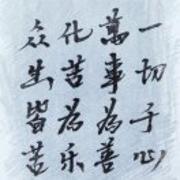 一切于心
萬事為善
化苦為乐
众生皆苦